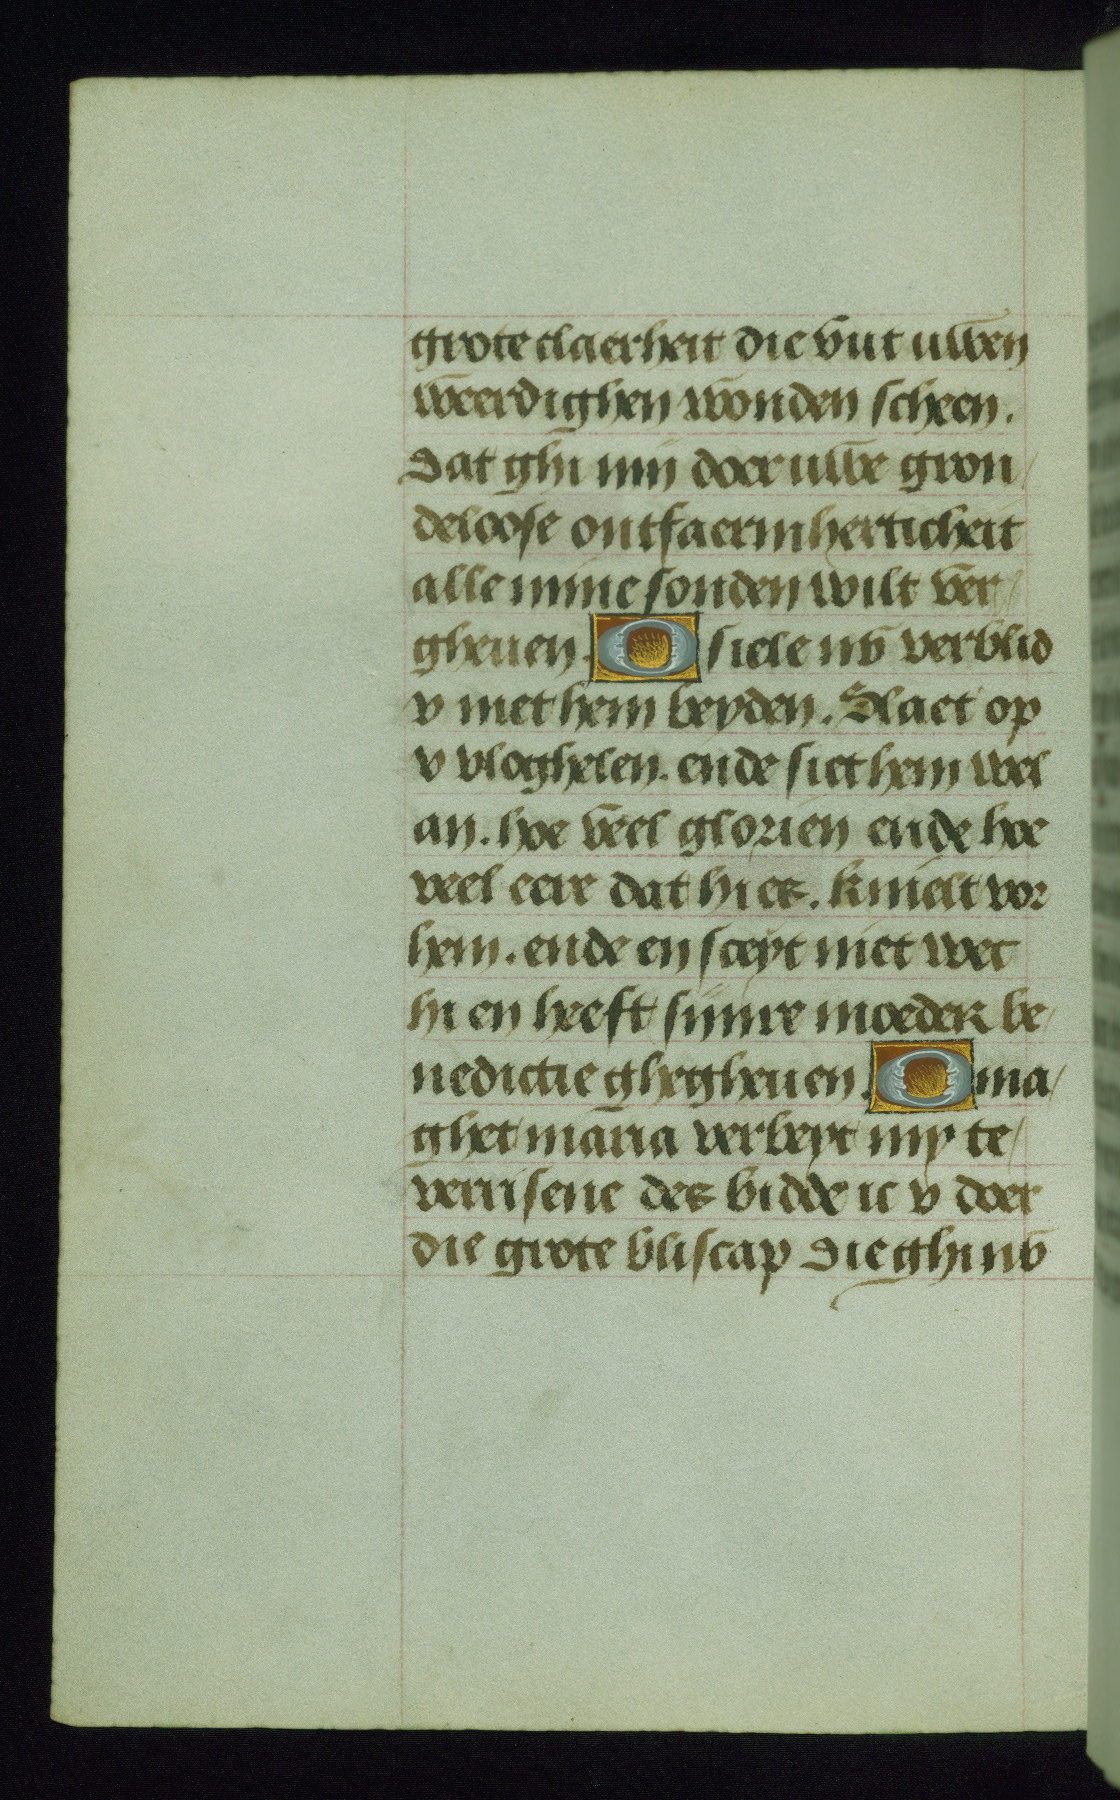 grote claerheit die vut uwen
weerdighen wonden scheen.
Dat ghi mij doer uwe gron/
deloose ontfaermherticheit
alle mine sonden wilt ver/
gheuen. O siele nv verblid
v met hem beyden. Slaet op
v vloghelen. ende siet hem wel
an. hoe veel glorien ende hoe
veel eere dat hi es. knielt vor
hem. ende en sceyt niet wec
hi en heeft sijnre moeder be/
nedictie ghegheuen. O ma/
ghet maria verbeyt my te/
verrisene des bidde ic v doer
die grote bliscap die ghi nv